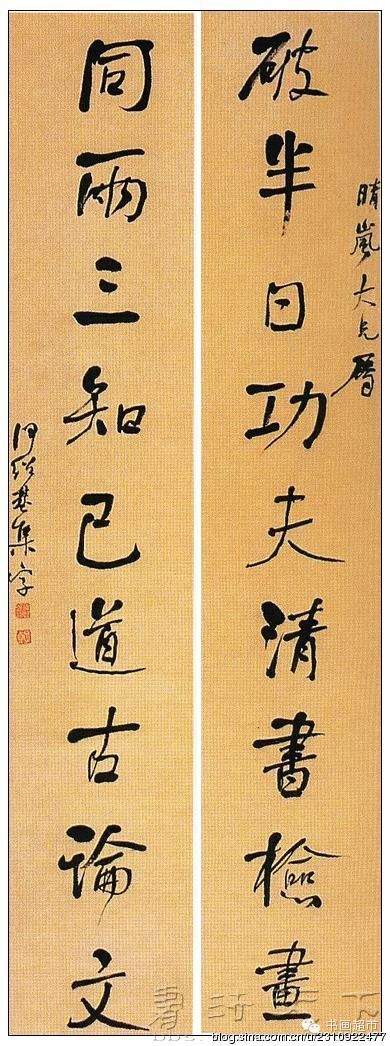 晴嵐大兄屬
破半日功夫清書檢畫
同兩三知己道古論文
何紹基集字
书画超市
blog.sina.com.cn/u/2310922477